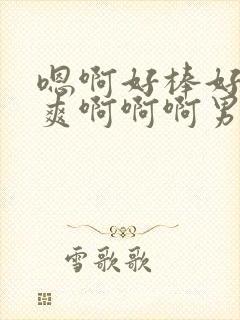 嗯啊好棒好
爽啊啊啊男
雪歌歌